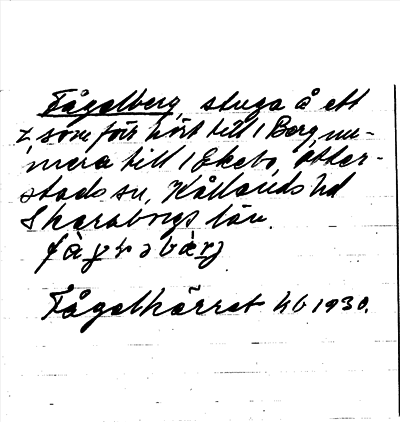 Fågelberg, stuga å ett
z, som förr hört till 1 Berg, nu-
mera till 1 Ekebo, Otter-
stads sn, Kållands hd
Skaraborgs län.
Fågelkärret hb 1930.